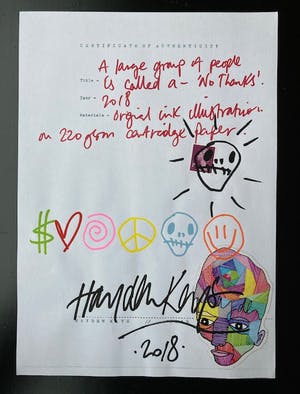 CERTIFICATE OF AUTHENTICITY
A large group of people
Title - Is called a - 'No Thanks'.
Year - 2018
Materials - Orginal ink illustration
on 220gsm cartridge paper
$
Hayden Kays
HAYDEN KAYS
·2018·